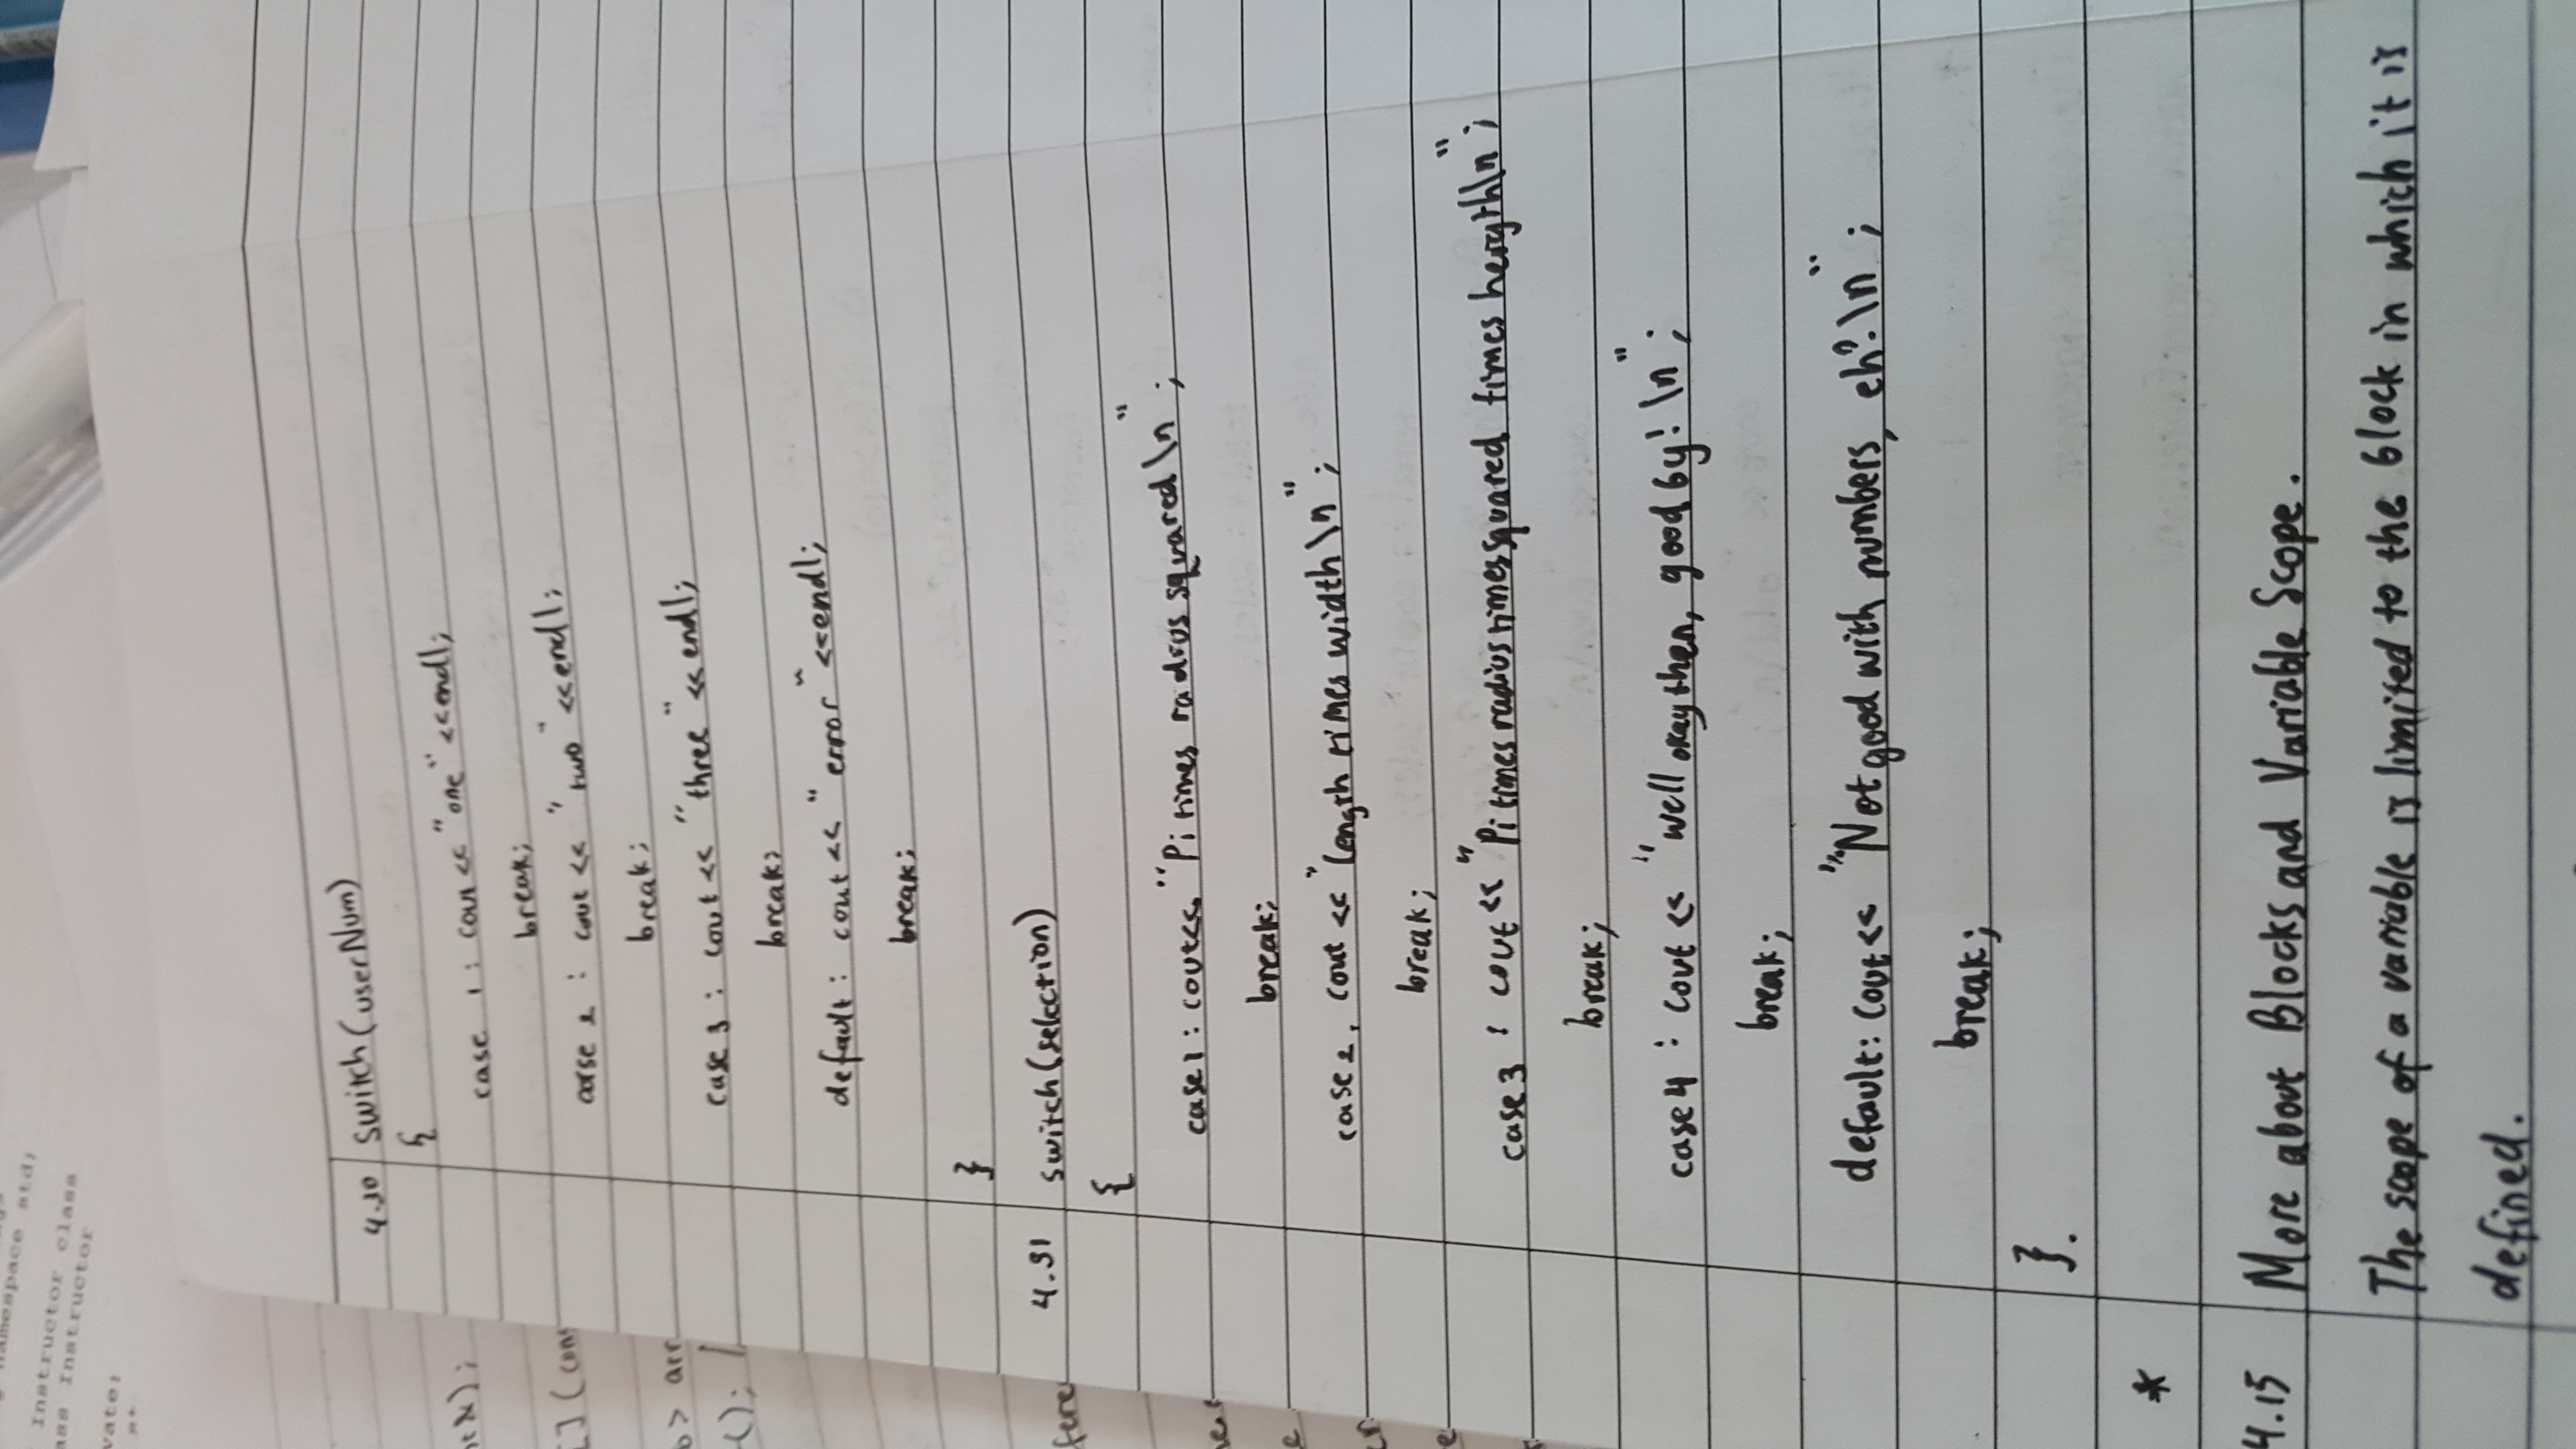 namespace std;
Instructor class
Instructor
switch(userNum)
{
case 1 : cout << "one" <<endl;
break;
case 2 : cout << "two" <<endl;
break;
case 3 : cout << "three" << endl;
break;
default : cout << "error" <<endl;
break;
}
4.31 switch(selection)
{
case1: cout<< "Pi times radius squared \n";
break;
case 2, cout << "length times width \n";
break;
case 3 : cout << "Pi times radius times squared times \n";
break;
case 4 : cout << "well okay then, good by! \n";
break;
default: cout << "Not good with numbers, eh? \n";
break;
}.
*
4.15 More about Blocks and Variable Scope.
The scope of a variable is limited to the block in which it is
defined.